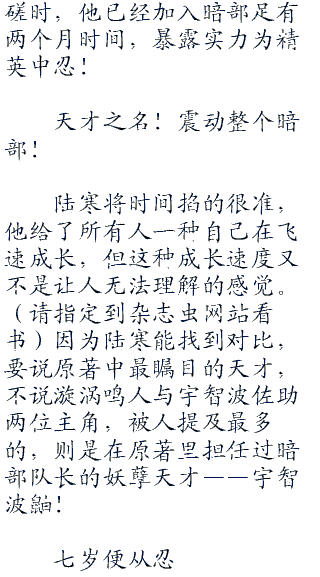 磋时，他已经加入暗部足有
两个月时间，暴露实力为精
英中忍！
天才之名！震动整个暗
部！
陆寒将时间掐的很准，
他给了所有人一种自己在飞
速成长，但这种成长速度又
不是让人无法理解的感觉。
（请指定到杂志虫网站看
书）因为陆寒能找到对比，
要说原著中最瞩目的天才，
不说漩涡鸣人与宇智波佐助
两位主角，被人提及最多
的，则是在原著里担任过暗
部队长的妖孽天才——宇智
波鼬！
七岁便从忍